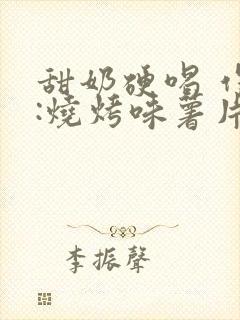 甜奶硬唱
:燒烤味薯片
李振聲